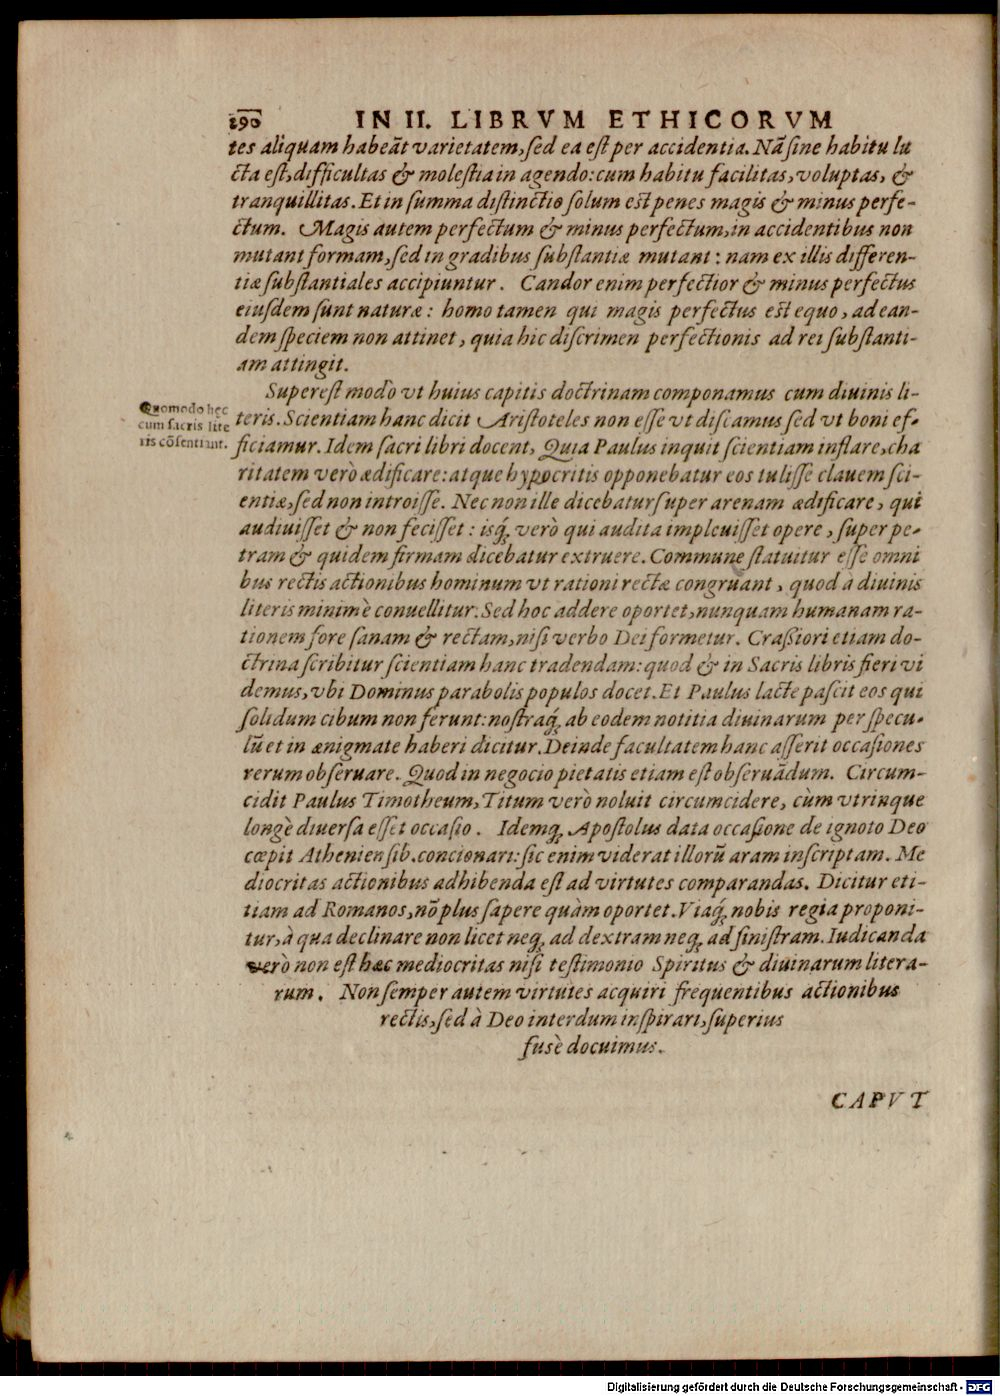 290 IN II. LIBRVM ETHICORVM
tes aliquam habeāt varietatem, sed ea est per accidentia. Nā sine habitu lu
cta est, difficultas & molestia in agendo: cum habitu facilitas, voluptas, &
tranquillitas. Et in summa distinctio solum est penes magis & minus perfe-
ctum. Magis autem perfectum & minus perfectum, in accidentibus non
mutant formam, sed in gradibus substantiæ mutant: nam ex illis differen-
tiæ substantiales accipiuntur. Candor enim perfectior & minus perfectus
eiusdem sunt naturæ: homo tamen qui magis perfectus est equo, ad ean-
dem speciem non attinet, quia hic discrimen perfectionis ad rei substanti-
am attingit.
Superest modo vt huius capitis doctrinam componamus cum diuinis li-
Quomodo hęc
cum sacris lite
ris cōsentiant.
teris. Scientiam hanc dicit Aristoteles non esse vt discamus sed vt boni ef-
ficiamur. Idem sacri libri docent, Quia Paulus inquit scientiam inflare, cha
ritatem verò ædificare: atque hypocritis opponebatur eos tulisse clauem sci-
entiæ, sed non introisse. Nec non ille dicebatur super arenam ædificare, qui
audiuisset & non fecisset: isq́ verò qui audita impleuisset opere, super pe-
tram & quidem firmam dicebatur extruere. Commune statuitur esse omni
bus rectis actionibus hominum vt rationi rectæ congruant, quod à diuinis
literis minimè conuellitur. Sed hoc addere oportet, nunquam humanam ra-
tionem fore sanam & rectam, nisi verbo Dei formetur. Craßiori etiam do-
ctrina scribitur scientiam hanc tradendam: quod & in Sacris libris fieri vi
demus, vbi Dominus parabolis populos docet. Et Paulus lacte pascit eos qui
solidum cibum non ferunt: nostraq́ ab eodem notitia diuinarum per specu-
lū et in ænigmate haberi dicitur. Deinde facultatem hanc asserit occasiones
rerum obseruare. Quod in negocio pietatis etiam est obseruādum. Circum-
cidit Paulus Timotheum, Titum verò noluit circumcidere, cùm vtrinque
longè diuersa esset occasio. Idemq́ Apostolus data occasione de ignoto Deo
cœpit Atheniensib. concionari: sic enim viderat illorū aram inscriptam. Me
diocritas actionibus adhibenda est ad virtutes comparandas. Dicitur eti-
tiam ad Romanos, nō plus sapere quàm oportet. Viaq́ nobis regia proponi-
tur, à qua declinare non licet neq́ ad dextram neq́ ad sinistram. Iudicanda
verò non est hæc mediocritas nisi testimonio Spiritus & diuinarum litera-
rum. Non semper autem virtutes acquiri frequentibus actionibus
rectis, sed à Deo interdum inspirari, superius
fusè docuimus.
CAPVT
Digitalisierung gefördert durch die Deutsche Forschungsgemeinschaft - DFG